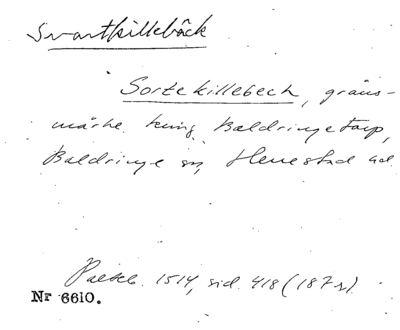 Svartkillebäck
Sortekillebeck, gräns-
märke kring Baldringetorp,
Baldringe sn, Herrestad hd.
Palteb. 1514, sid. 418 (187 r).
Nr 6610.